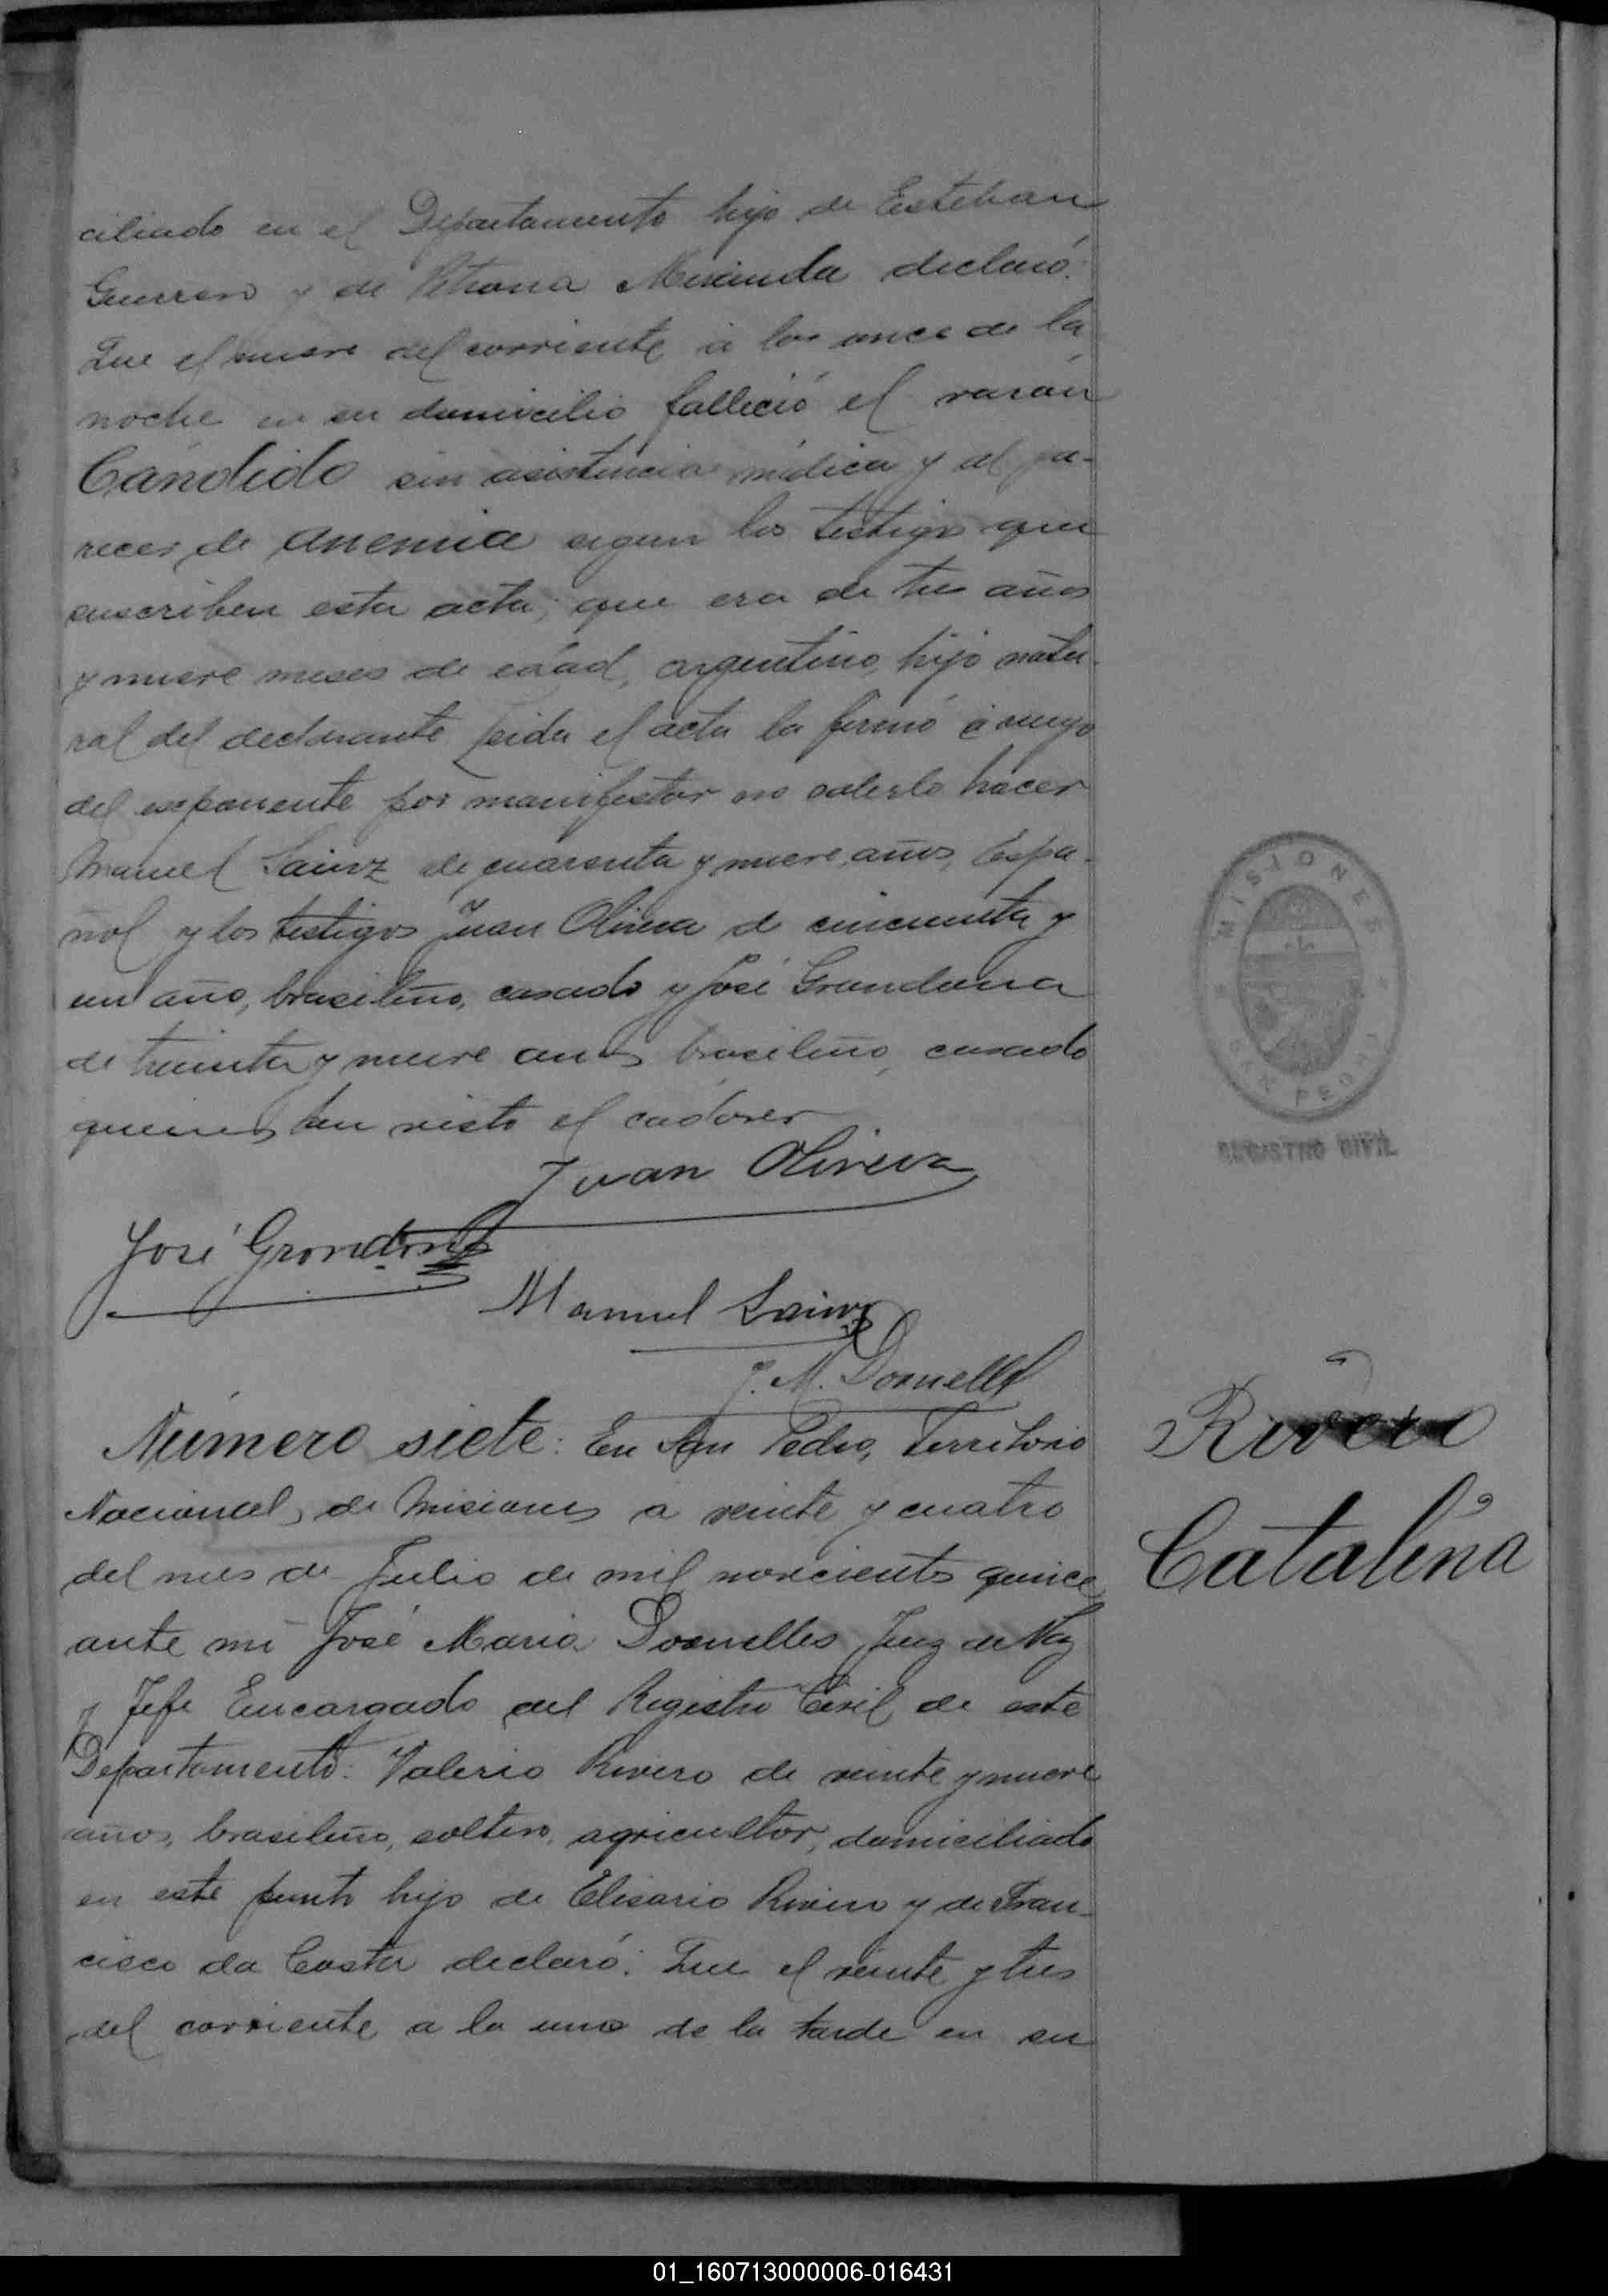 ciliado en el Departamento hijo de Esteban
Guerrero y de Petrona Miranda declaró:
Que el nueve del corriente á las once de la
noche en su domicilio falleció el varón
Cándido sin asistencia médica y al pa-
recer de anemia segun los testigos que
suscriben esta acta; que era de tres años
y nueve meses de edad, argentino, hijo natu-
ral del declarante leida el acta la firmó á ruego
del esponente por manifestar no saberlo hacer
Manuel Sainz de cuarenta y nueve años, Espa-
ñol y los testigos Juan Olivera de cincuenta y
un año, brasileño, casado y José Grondona
de treinta y nueve años brasileño, casado
quienes han visto el cadáver
Juan Olivera
José Grondona
Manuel Sainz
J. M. Dornelles
Número siete: En San Pedro, Territorio
Nacional de Misiones a veinte y cuatro
del mes de Julio de mil novecientos quince
ante mi José Maria Dornelles Juez de Paz
y Jefe Encargado del Registro Civil de este
Departamento: Valerio Rivero de veinte y nueve
años, brasileño, soltero, agricultor, domiciliado
en este punto hijo de Elisario Rivero y de Fran-
cisca da Costa declaró: Que el veinte y tres
del corriente a la una de la tarde en su
MISIONES
SAN PEDRO
REGISTRO CIVIL
Rivero
Catalina
01_160713000006-016431